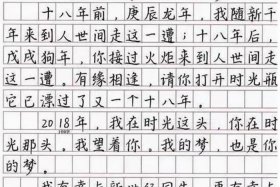 十八年前，庚辰龙年，我随新千
年来到人世间走这一遭；十八年后，
戊戌狗年，你接过火炬来到人世间走
这一遭。有缘相逢，请你打开时光瓶
它已漂过了又一个十八年。
2018年，我在时光这头，你在时
光那头。我望着你。我的梦，也是你
的梦。